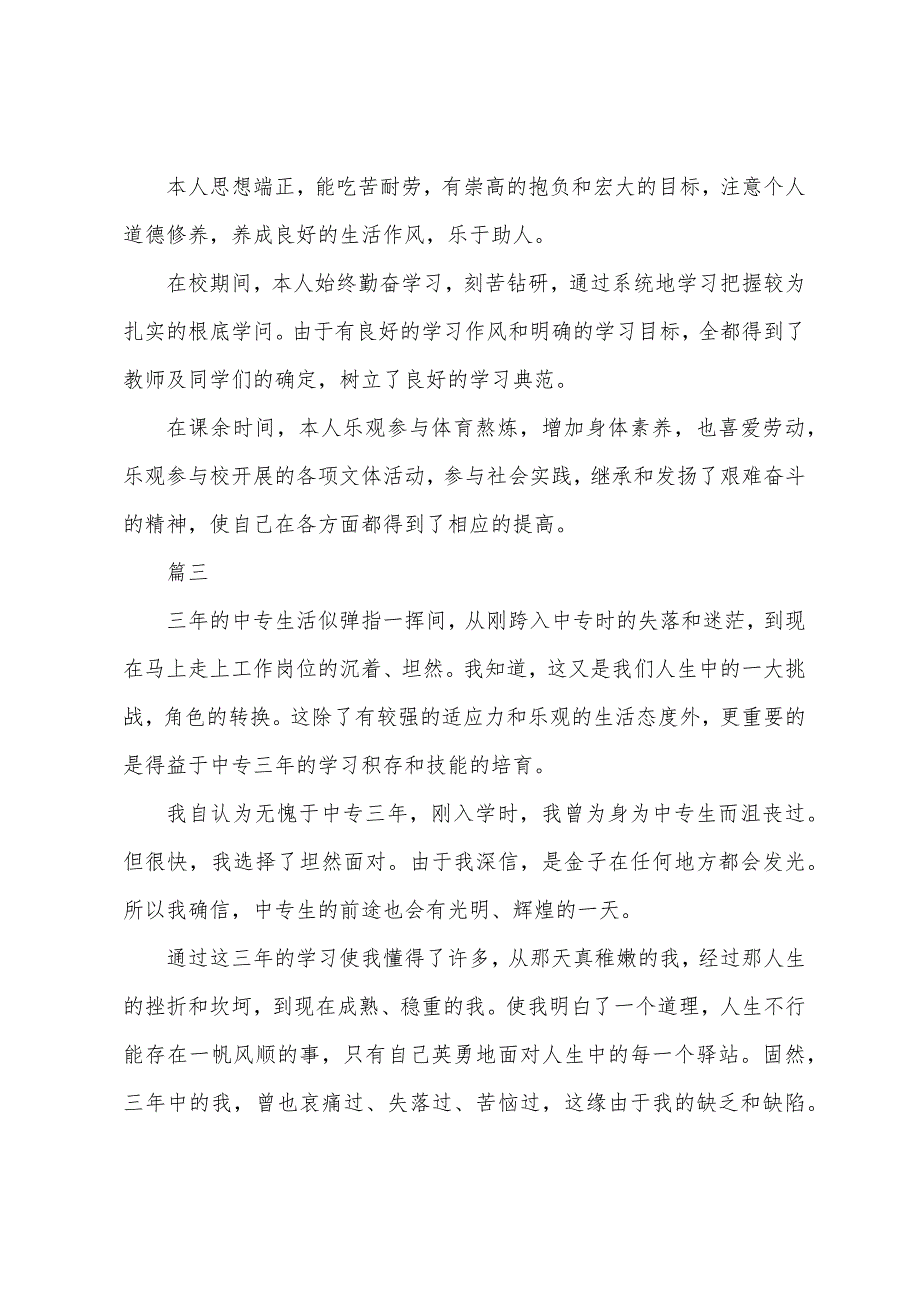 本人思想端正，能吃苦耐劳，有崇高的抱负和宏大的目标，注意个人
道德修养，养成良好的生活作风，乐于助人。
在校期间，本人始终勤奋学习，刻苦钻研，通过系统地学习把握较为
扎实的根底学问。由于有良好的学习作风和明确的学习目标，全都得到了
教师及同学们的确定，树立了良好的学习典范。
在课余时间，本人乐观参与体育熬炼，增加身体素养，也喜爱劳动，
乐观参与校开展的各项文体活动，参与社会实践，继承和发扬了艰难奋斗
的精神，使自己在各方面都得到了相应的提高。
篇三
三年的中专生活似弹指一挥间，从刚跨入中专时的失落和迷茫，到现
在马上走上工作岗位的沉着、坦然。我知道，这又是我们人生中的一大挑
战，角色的转换。这除了有较强的适应力和乐观的生活态度外，更重要的
是得益于中专三年的学习积存和技能的培育。
我自认为无愧于中专三年，刚入学时，我曾为身为中专生而沮丧过。
但很快，我选择了坦然面对。由于我深信，是金子在任何地方都会发光。
所以我确信，中专生的前途也会有光明、辉煌的一天。
通过这三年的学习使我懂得了许多，从那天真稚嫩的我，经过那人生
的挫折和坎坷，到现在成熟、稳重的我。使我明白了一个道理，人生不行
能存在一帆风顺的事，只有自己英勇地面对人生中的每一个驿站。固然，
三年中的我，曾也哀痛过、失落过、苦恼过，这缘由于我的缺乏和缺陷。